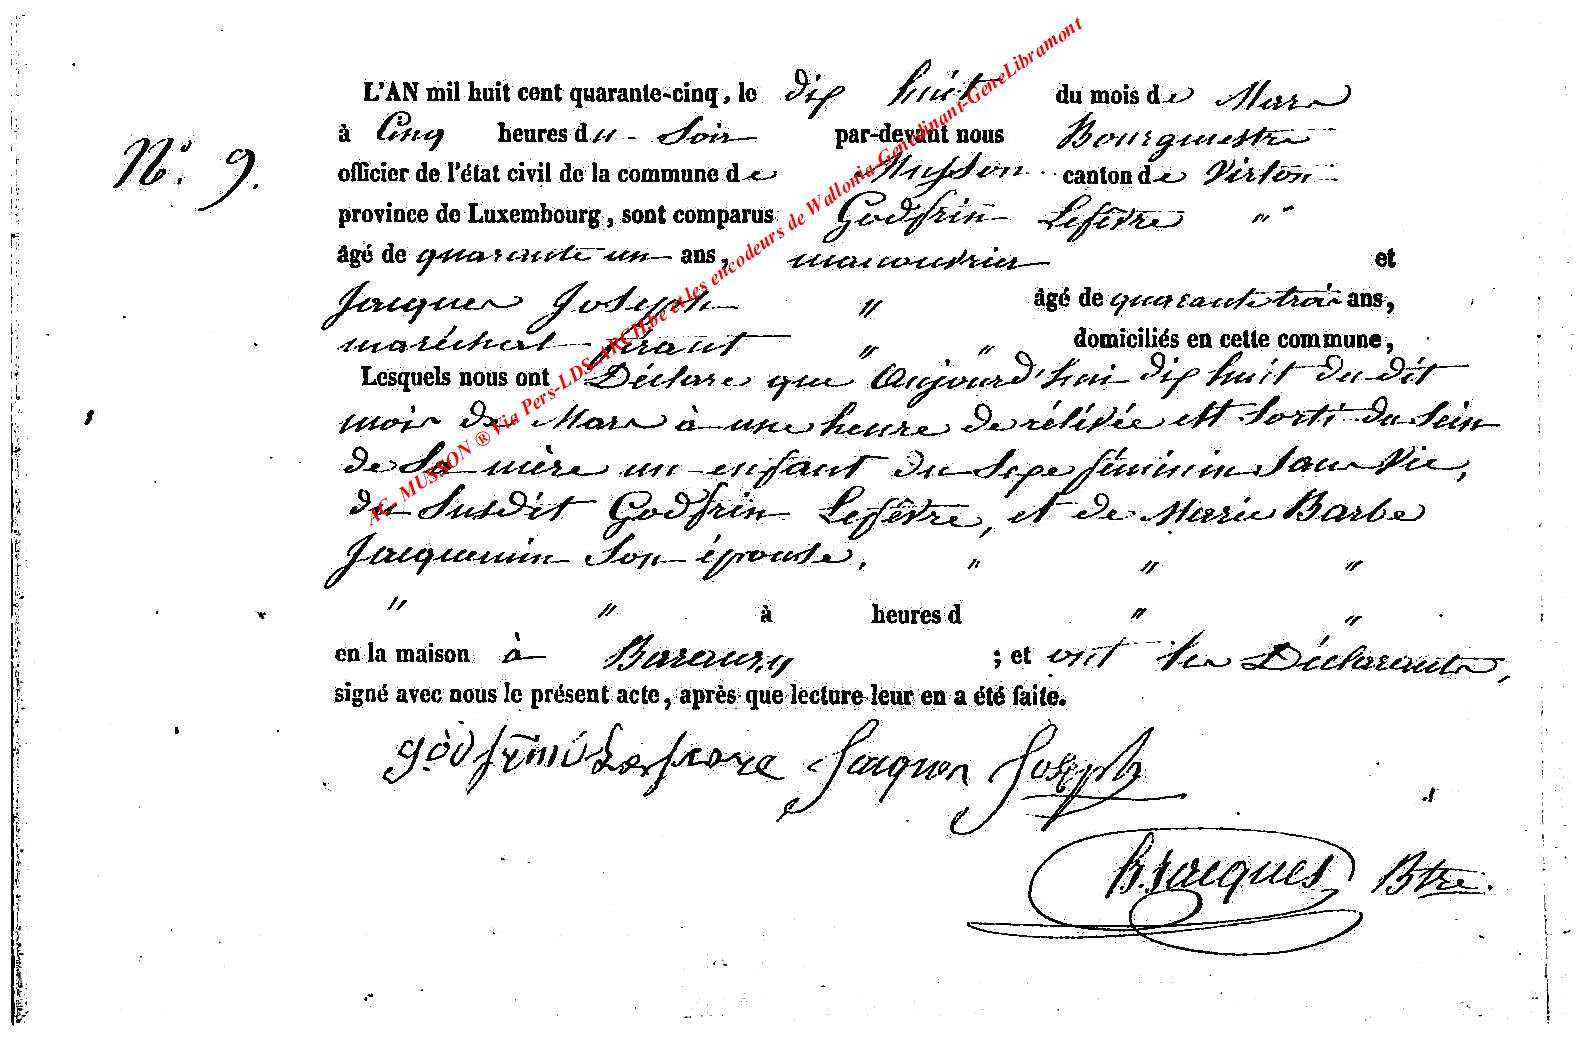 L'AN mil huit cent quarante-cinq, le dix huit du mois de Mars
à Cinq heures du Soir par-devant nous Bourgmestre
N.° 9.
officier de l'état civil de la commune de Musson canton de Virton
province de Luxembourg, sont comparus Godfrin Lefèvre "
âgé de quarante un ans, manouvrier et
Jacques Joseph " âgé de quarante trois ans,
maréchal ferant " " domiciliés en cette commune,
Lesquels nous ont Déclaré que Aujourd'hui dix huit du dit
mois de Mars à une heure de rélévée est Sorti du Sein
de Sa mère un enfant du Sexe féminin Sans Vie,
du Susdit Godfrin Lefèvre, et de Marie Barbe
Jacquemin Son épouse. " " "
" " à heures d " "
en la maison à Baranzy ; et ont les Déclarants,
signé avec nous le présent acte, après que lecture leur en a été faite.
Jacques Joseph
Jacques Btre.
AC. MUSSON ® Via Pers-LDS-ARCH.be et les encodeurs de Wallonia-Genedinant-GeneLibramont